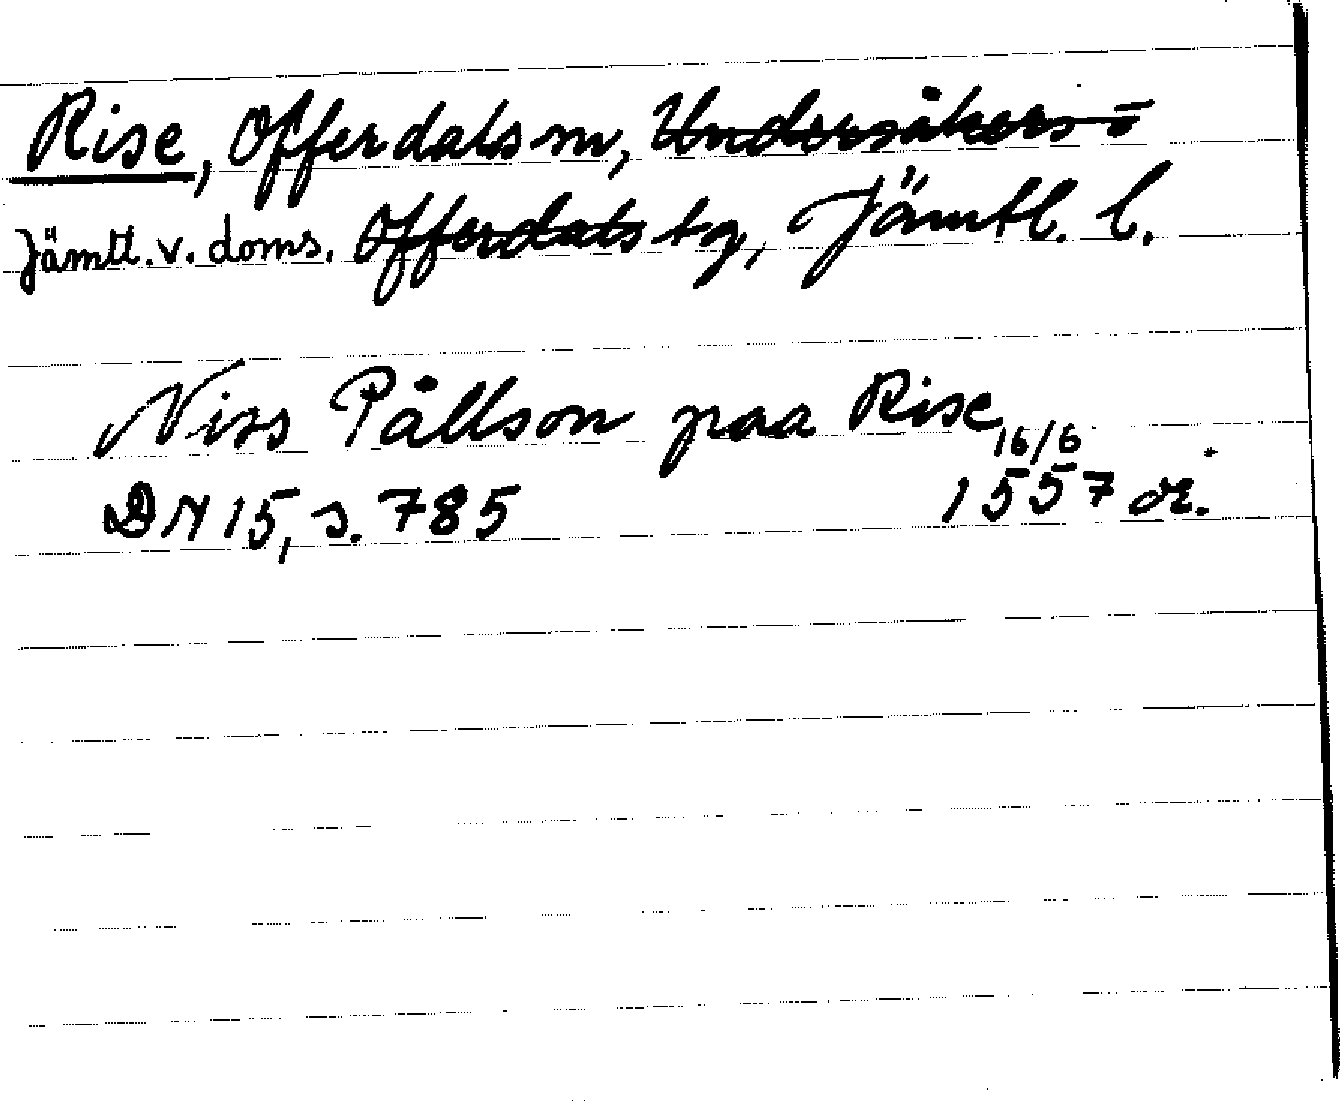 Rise, Offerdals sn, Undersåkers o
Jämtl. v. doms. Offerdals tg, Jämtl. l.
Niss Pållson paa Rise
16/6
DN 15, s. 785 1557 or.